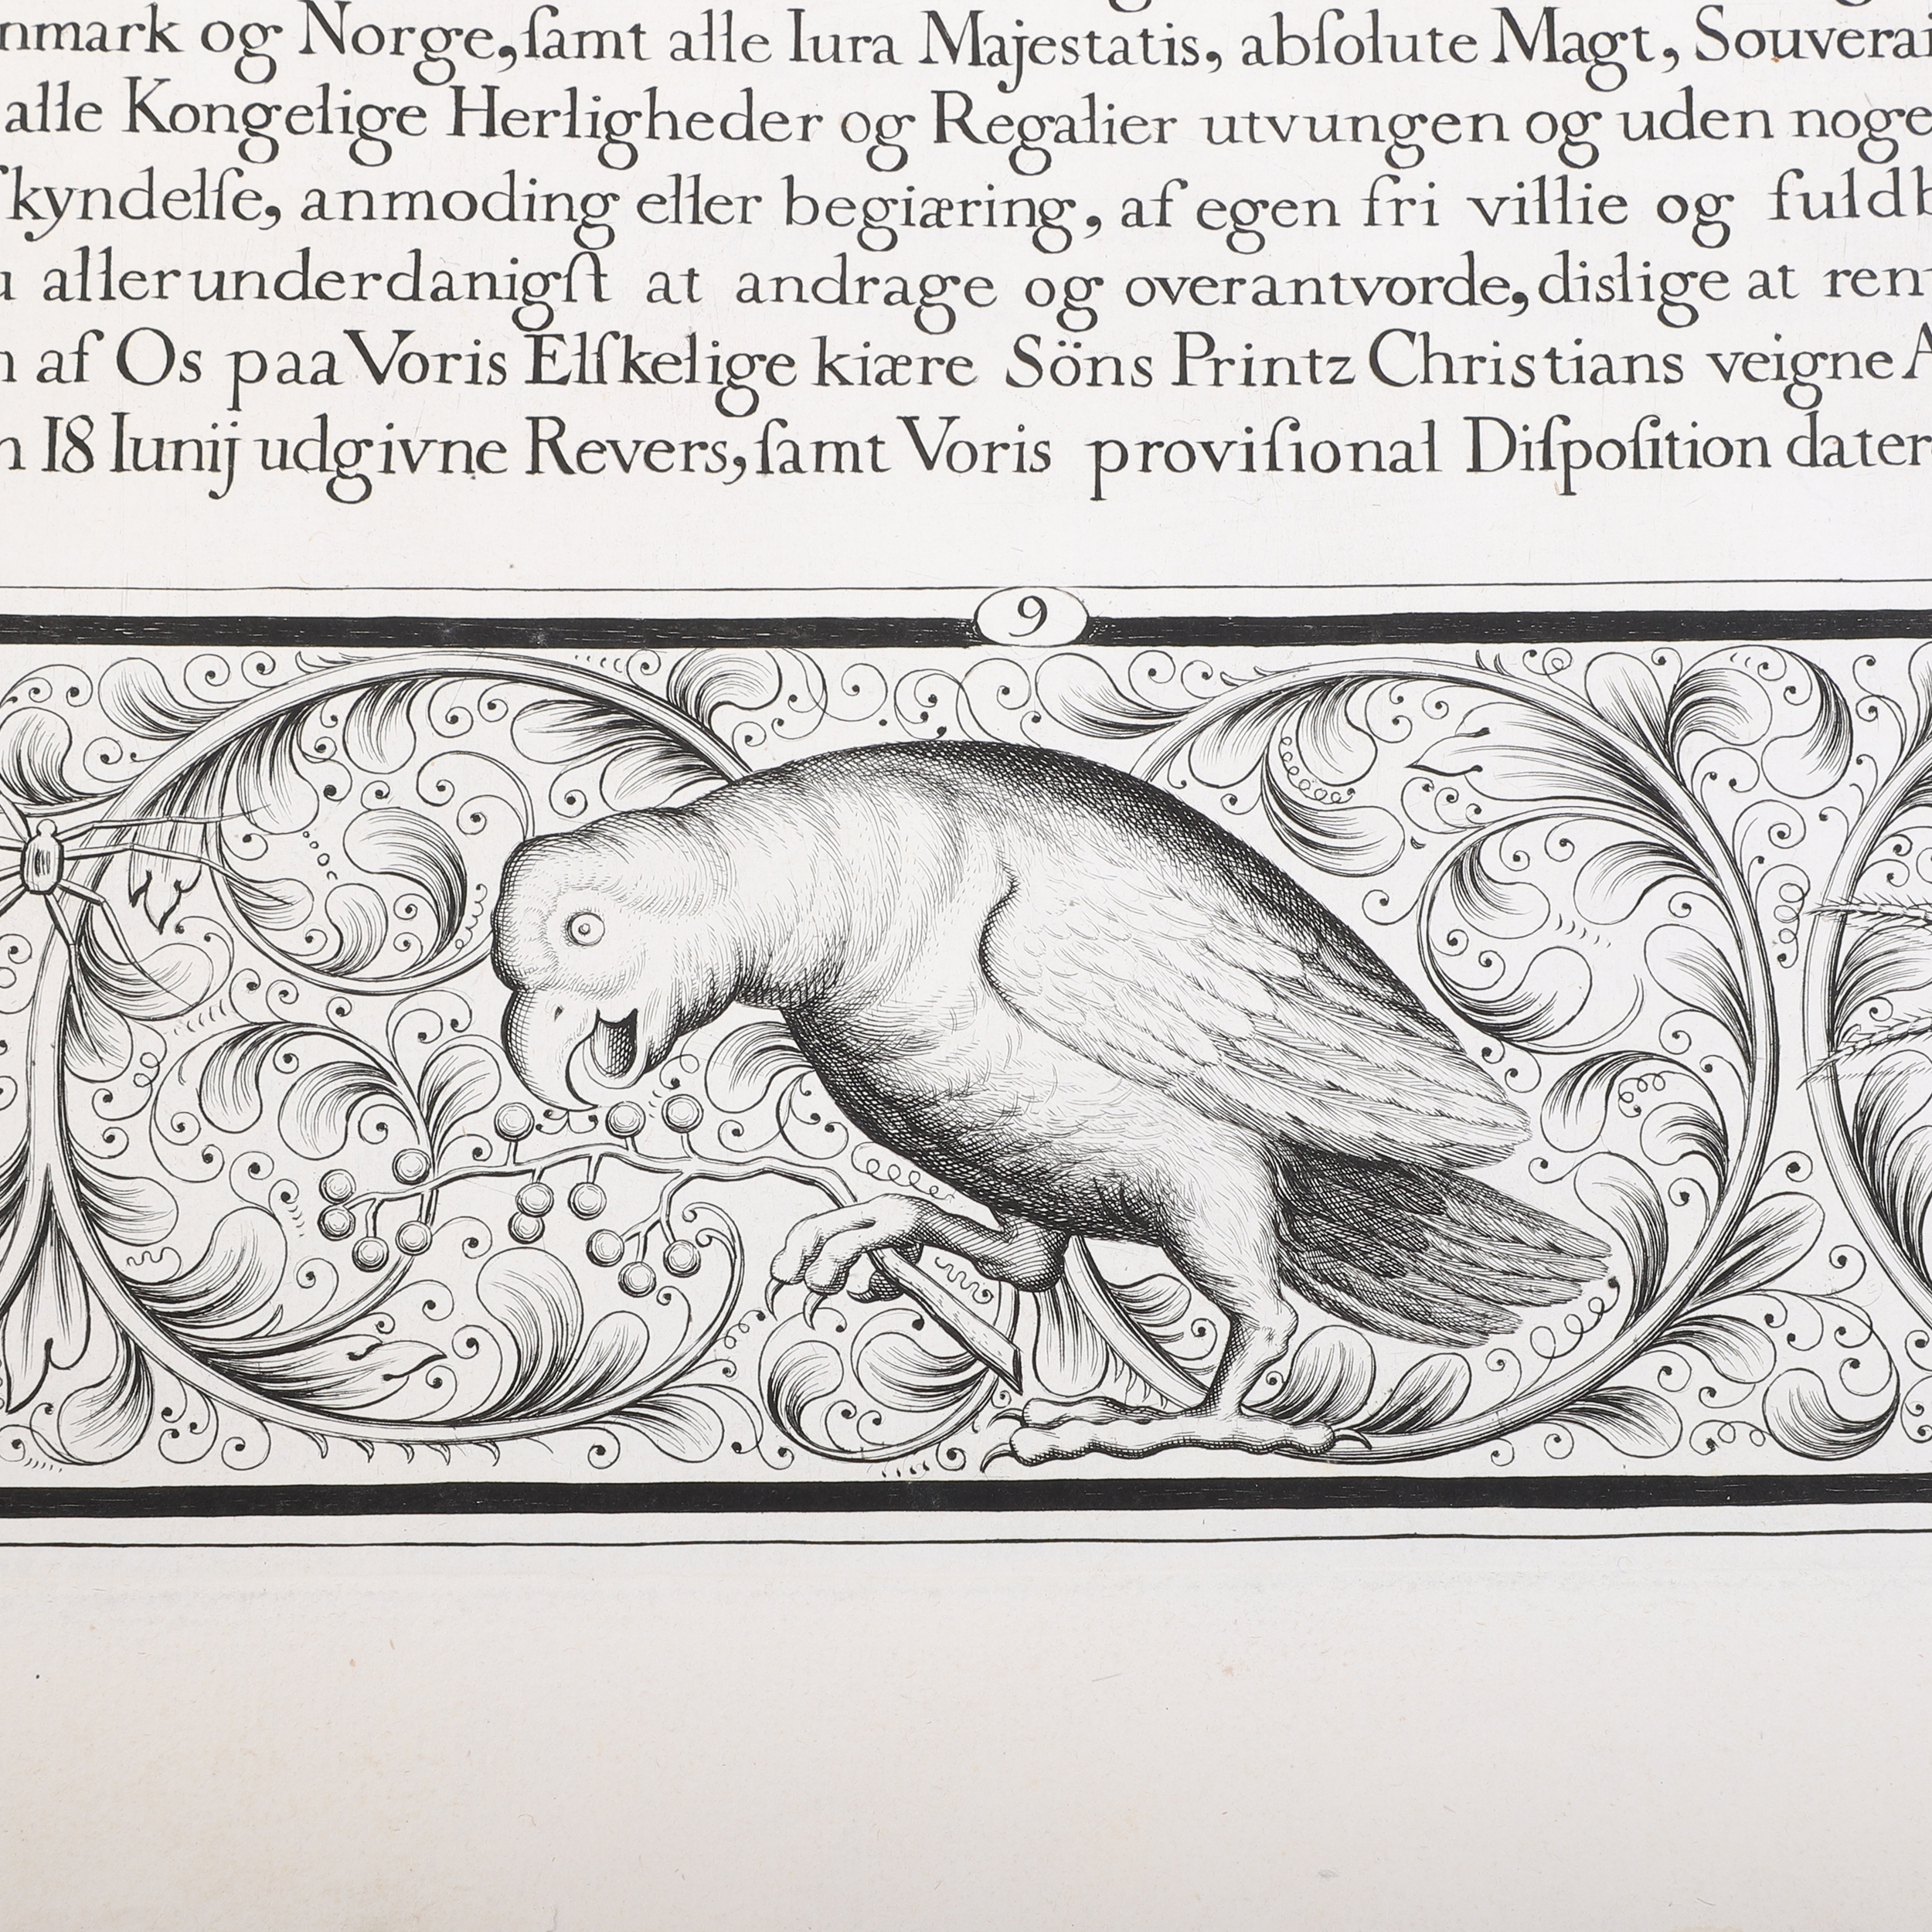 nmark og Norge, ſamt alle Iura Majestatis, abſolute Magt, Souverai
alle Kongelige Herligheder og Regalier utvungen og uden noge
ſkyndelſe, anmoding eller begiæring, af egen fri villie og fuldb
u allerunderdanigſt at andrage og overantvorde, dislige at ren
n af Os paa Voris Elſkelige kiære Söns Printz Christians veigne A
n 18 Iunij udgivne Revers, ſamt Voris proviſional Diſpoſition dater
9